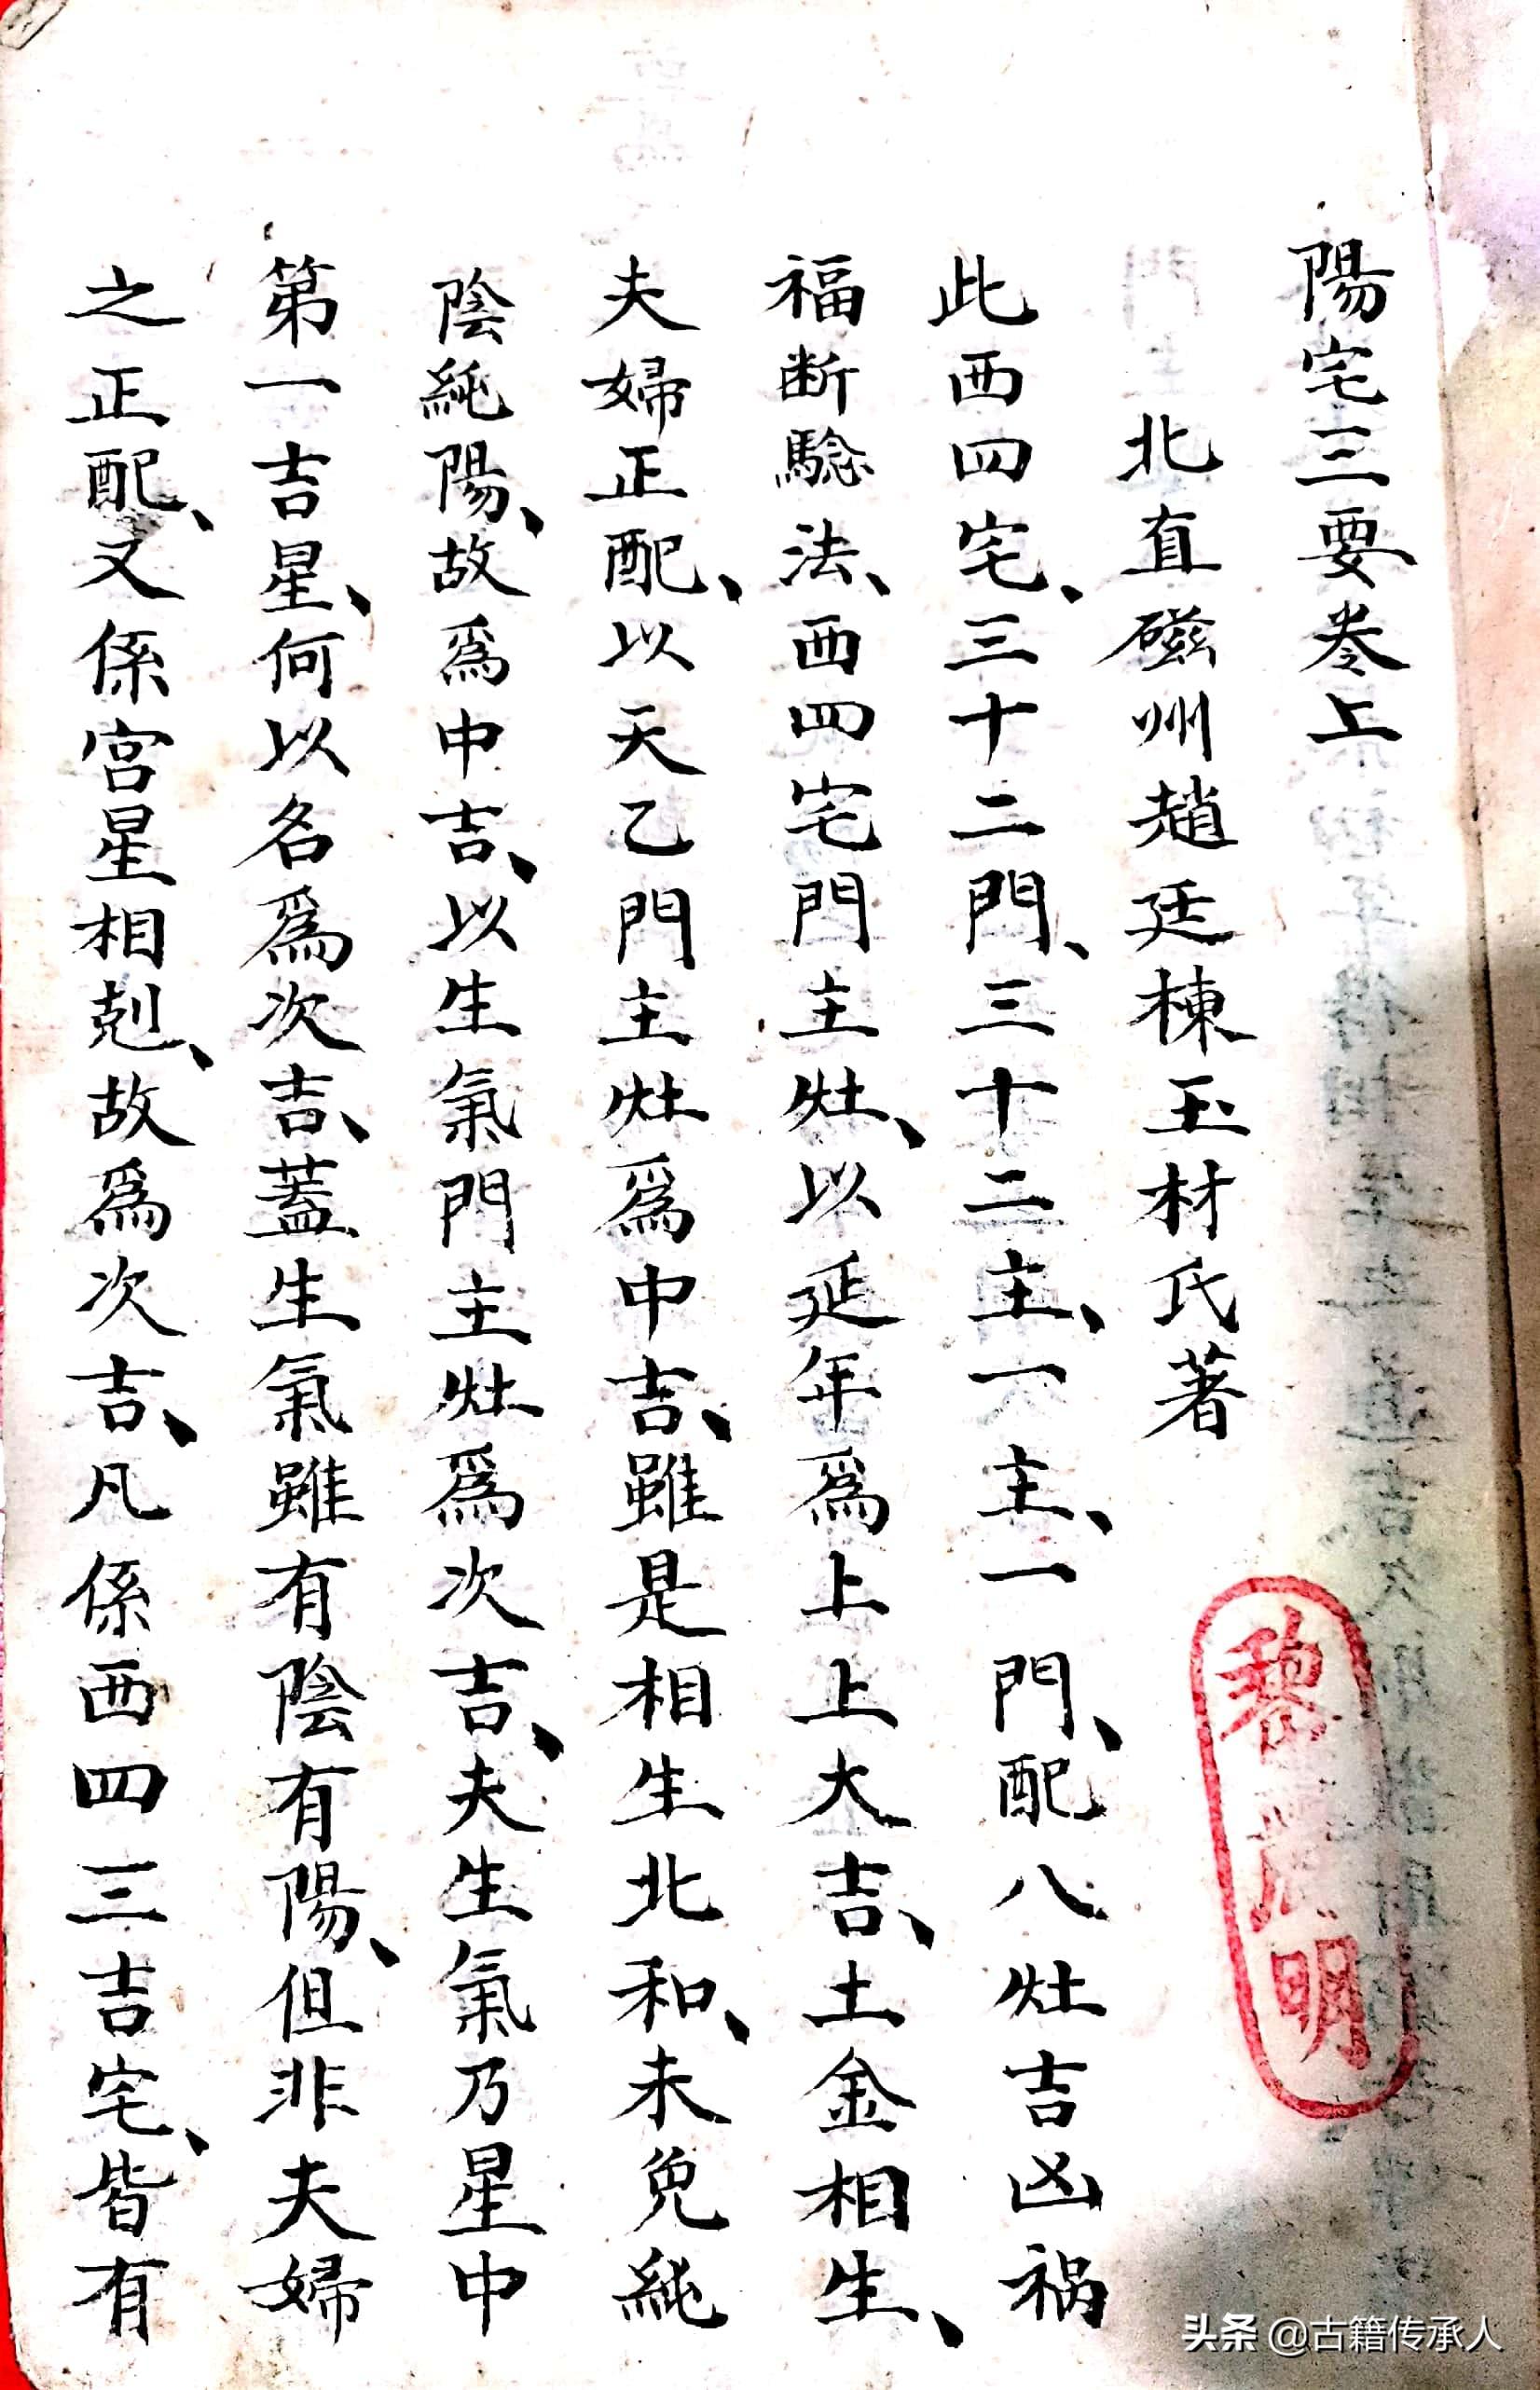 陽宅三要卷上
北直磁州趙廷棟玉材氏著
此西四宅、三十二門、三十二主、一主、一門、配八灶吉凶祸
福断騐法、西四宅門主灶、以延年為上上大吉、土金相生、
夫婦正配、以天乙門主灶為中吉、雖是相生北和、未免純
陰純陽、故為中吉、以生氣門主灶為次吉、夫生氣乃星中
第一吉星、何以名為次吉、蓋生氣雖有陰有陽、但非夫婦
之正配、又係宮星相剋、故為次吉、凡係西四三吉宅、皆有
黎
明
头条 @古籍传承人